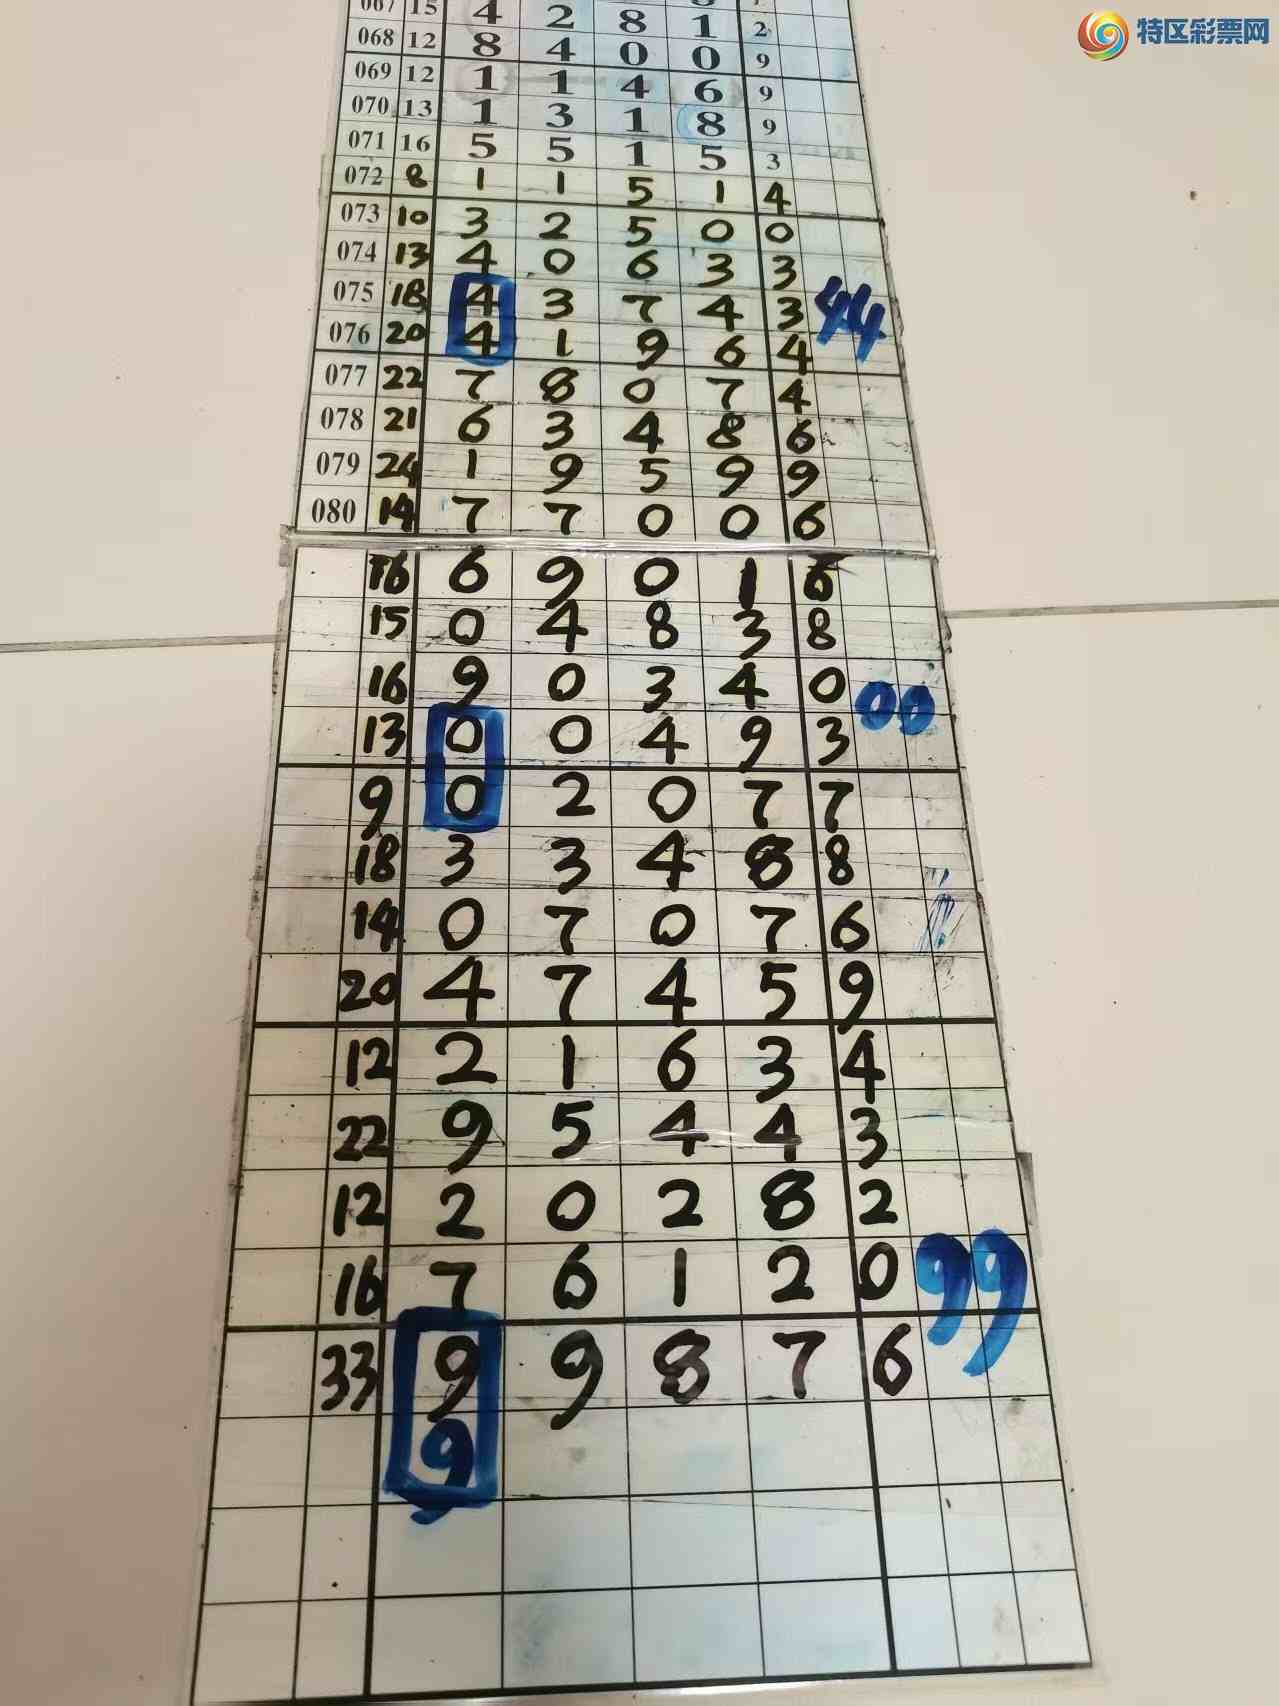 特区彩票网
067 15 4 2 8 1 2
068 12 8 4 0 0 9
069 12 1 1 4 6 9
070 13 1 3 1 8 9
071 16 5 5 1 5 3
072 8 1 1 5 1 4
073 10 3 2 5 0 0
074 13 4 0 6 3 3
075 18 4 3 7 4 3 44
076 20 4 1 9 6 4
077 22 7 8 0 7 4
078 21 6 3 4 8 6
079 24 1 9 5 9 9
080 14 7 7 0 0 6
16 6 9 0 1 6
15 0 4 8 3 8
16 9 0 3 4 0 00
13 0 0 4 9 3
9 0 2 0 7 7
18 3 3 4 8 8
14 0 7 0 7 6
20 4 7 4 5 9
12 2 1 6 3 4
22 9 5 4 4 3
12 2 0 2 8 2
16 7 6 1 2 0 99
33 9 9 8 7 6
9